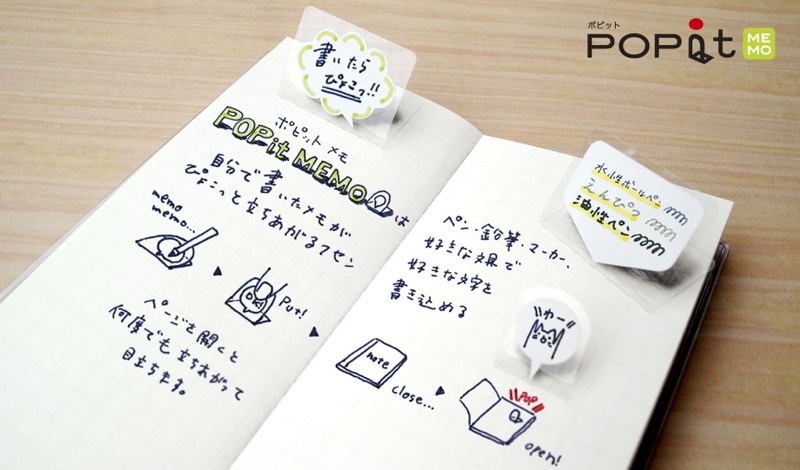 ポピット
POPit
ME
MO
書いたら
ぴょこっ!!
ポピット メモ
POPit MEMO は
自分で書いたメモが
ぴょこっと立ちあがるフセン
memo
memo...
Put!
ページを開くと
何度でも立ちあがって
目立ちます。
水性ボールペン
えんぴつ
油性ペン
ペン・鉛筆・マーカー、
好きな文具で
好きな文字を
書き込める
わー
note
close...
POP
open!